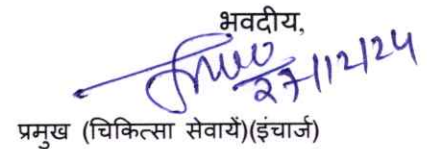 भवदीय,
27/12/24
प्रमुख (चिकित्सा सेवायें)(इंचार्ज)